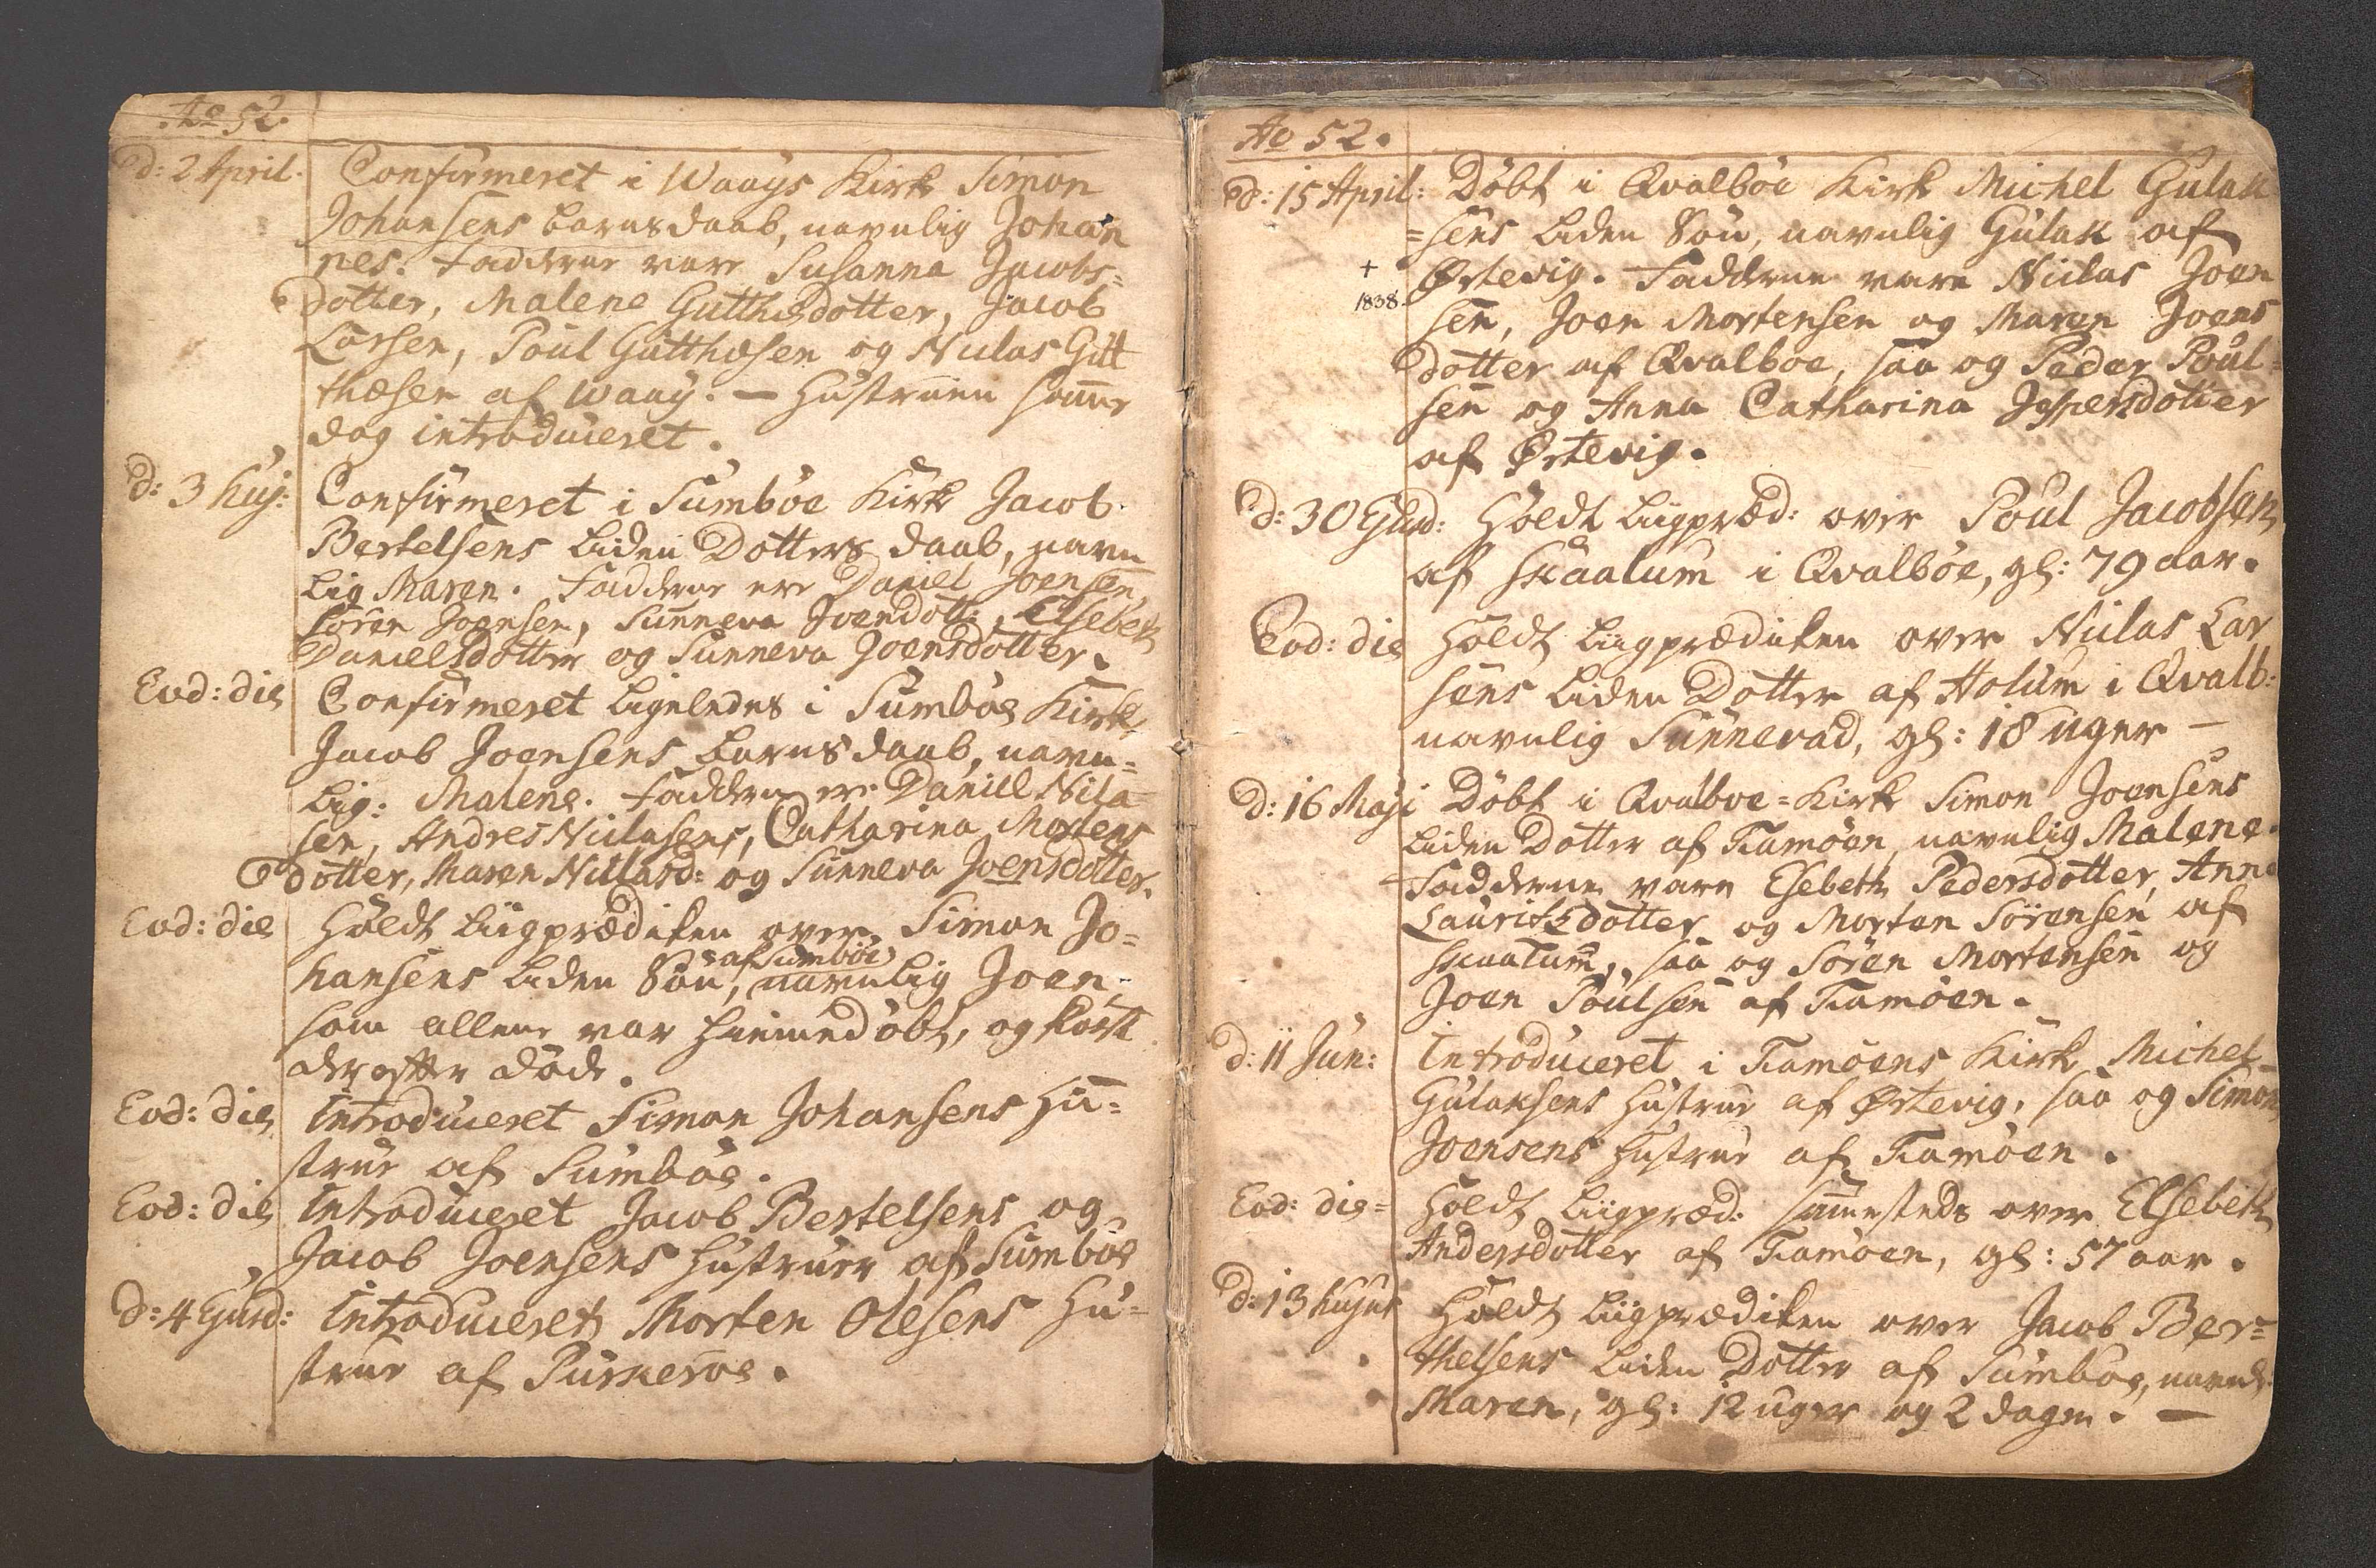 Ao 52.
d: 2 April. Confirmeret i Waags Kirke Simon
Johansens barnsdaab, navnlig Johan
nes. Faddrne vare Susanna Jacobs-
dotter, Malene Gutthesdotter, Jacob
Larsen, Poul Gutthesen og Niclas Gut
thesen af Waag. — Hustruen samme
dag introduceret.
d: 3 huj: Confirmeret i Sumböe Kirke Jacob
Bertelsens liden Dotters daab, navn
lig Maren. Faddrne ere Daniel Joensen,
Sören Joensen, Sunneva Joensdott:, Elsebeth
Danielsdotter og Sunneva Joensdotter.
Eod: die Confirmeret ligeledes i Sumböe Kirke
Jacob Joensens barnsdaab, navn-
lig: Malene. Faddrne ere Daniel Nicla-
sen, Andres Niclasens, Catharina Mortens
dotter, Maren Niclasd: og Sunneva Joensdotter.
Eod: die Holdt Liigprædiken over Simon Jo-
hansens liden Sön, af Sumböe navnlig Joen,
som allene var hiemmedöbt, og kort
derefter döde.
Eod: die Introduceret Simon Johansens Hu-
strue af Sumböe.
Eod: die Introduceret Jacob Bertelsens og
Jacob Joensens Hustruer af Sumböe
d: 4 Ejusd: Introduceret Morten Olesens Hu-
strue af Purkeroe.
Ao 52.
d: 15 April: Döbt i Qvalböe Kirke Michel Gulak
=sens liden Sön, navnlig Gulak af
Ørtevig. Faddrne vare Niclas Joen
+
1838.
sen, Joen Mortensen og Maren Joens
dotter af Qvalboe, saa og Peder Poul-
sen og Anna Catharina Jespersdotter
af Ørtevig.
d: 30 Ejusd: Holdt Liigpræd: over Poul Jacobsen
af Skaalum i Qvalböe, gl: 79 aar.
Eod: die Holdt Liigprædiken over Niclas Lar
sens liden Dotter af Holum i Qvalb:
navnlig Sunnevad, gl: 18 uger —
d: 16 Maji Döbt i Qvalboe=Kirke Simon Joensens
liden Dotter af Famöen, navnlig Malene.
Faddrne vare Elsebeth Pedersdotter, Anna
Lauritzdotter og Morten Sörensen af
Skaalum, saa og Sören Mortensen og
Joen Poulsen af Famöen.
d: 11 Jun: Introduceret i Famöens Kirke Michel
Gulaksens Hustrue af Ørtevig, saa og Simon
Joensens Hustrue af Famöen.
Eod: die= Holdt Liigpræd: sammesteds over Elsebeth
Andersdotter af Famöen, gl: 57 aar.
d: 13 hujus Holdt Liigprædiken over Jacob Ber-
thelsens liden Dotter af Sumböe, navnl.
Maren, gl: 12 uger og 2 dagen. —